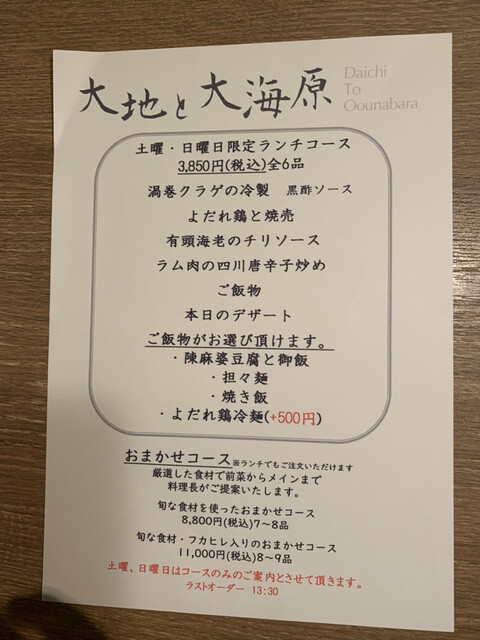 大地と大海原
Daichi
To
Oounabara
土曜・日曜日限定ランチコース
3,850円(税込)全6品
渦巻クラゲの冷製　黒酢ソース
よだれ鶏と焼売
有頭海老のチリソース
ラム肉の四川唐辛子炒め
ご飯物
本日のデザート
ご飯物がお選び頂けます。
・陳麻婆豆腐と御飯
・担々麺
・焼き飯
・よだれ鶏冷麺(+500円)
おまかせコース※ランチでもご注文いただけます
厳選した食材で前菜からメインまで
料理長がご提案いたします。
旬な食材を使ったおまかせコース
8,800円(税込)7〜8品
旬な食材・フカヒレ入りのおまかせコース
11,000円(税込)8〜9品
土曜、日曜日はコースのみのご案内とさせて頂きます。
ラストオーダー 13:30